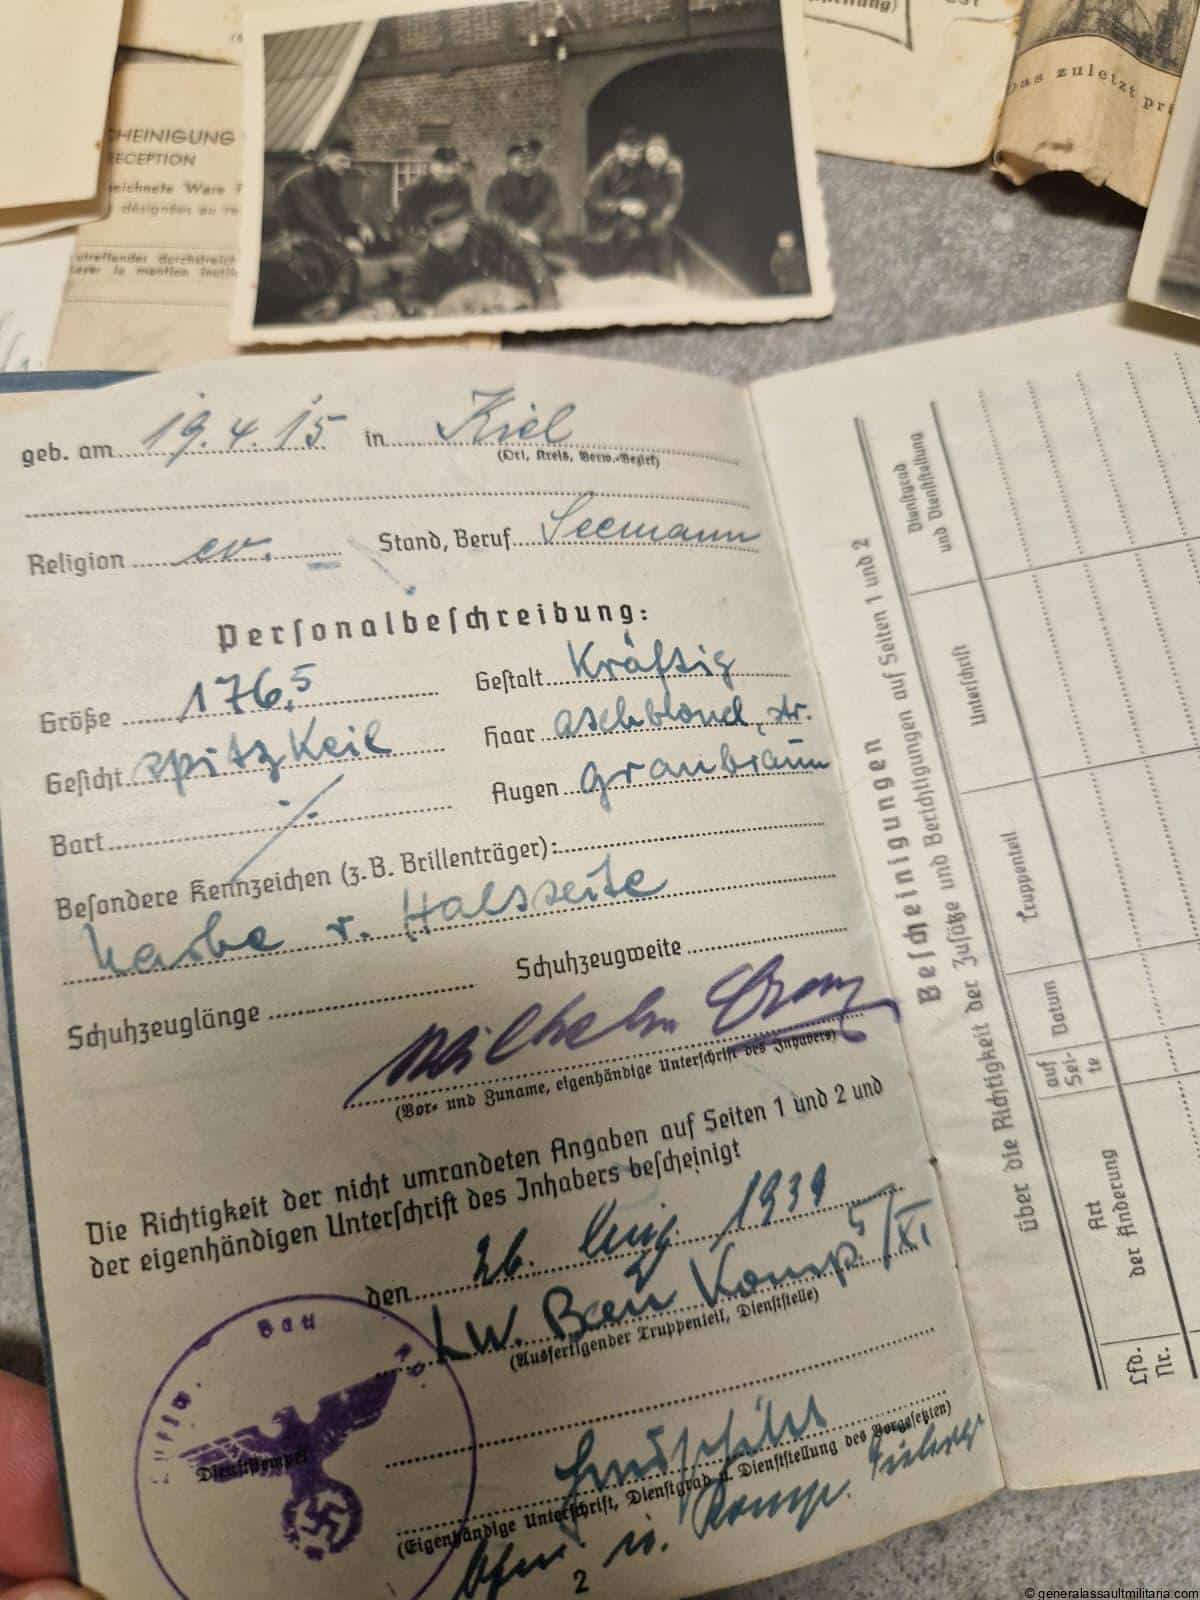 HEINIGUNG
RECEPTION
zeichnete Ware
désignées au
zutreffendes durchstreich
la mention
Das zuletzt
geb. am 19.4.15 in Kiel
(Ort, Kreis, Verw.-Bezirk)
Religion ev. Stand, Beruf Seemann
Personalbeschreibung:
Größe 176,5 Gestalt Kräftig
Gesicht spitz Keil Haar aschblond,
Bart ./. Augen graubraun
Besondere Kennzeichen (z.B. Brillenträger):
Narbe r. Halsseite
Schuhzeuglänge Schuhzeugweite
Wilhelm
(Vor- und Zuname, eigenhändige Unterschrift des Inhabers)
Die Richtigkeit der nicht umrandeten Angaben auf Seiten 1 und 2 und
der eigenhändigen Unterschrift des Inhabers bescheinigt
den 26. Aug. 1939
Lw. Bau Komp. 5/XI
(Ausfertigender Truppenteil, Dienststelle)
Dienststempel
(Eigenhändige Unterschrift, Dienstgrad u. Dienststellung des Vorgesetzten)
u. Komp.
2
Bescheinigungen
über die Richtigkeit der Zusätze und Berichtigungen auf Seiten 1 und 2
Lfd. Nr.
Art der Änderung
auf Seite
Datum
Truppenteil
Unterschrift
Dienstgrad und Dienststellung
© generalassaultmilitaria.com